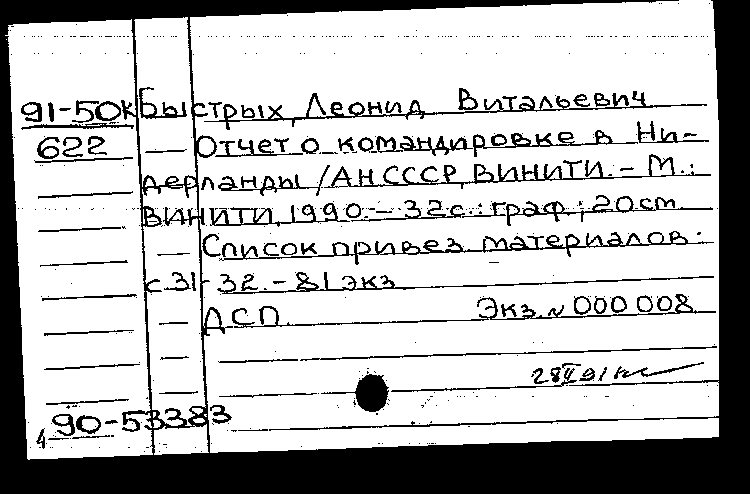 91-50к Быстрых, Леонид Витальевич
622 — Отчет о командировке в Ни-
дерланды / АН СССР, ВИНИТИ. - М.:
ВИНИТИ, 1990. - 32 с.: граф.; 20 cm
— Список привез. материалов:
с. 31-32. - 81 экз
— ДСП. Экз. N 000 008
90-53383